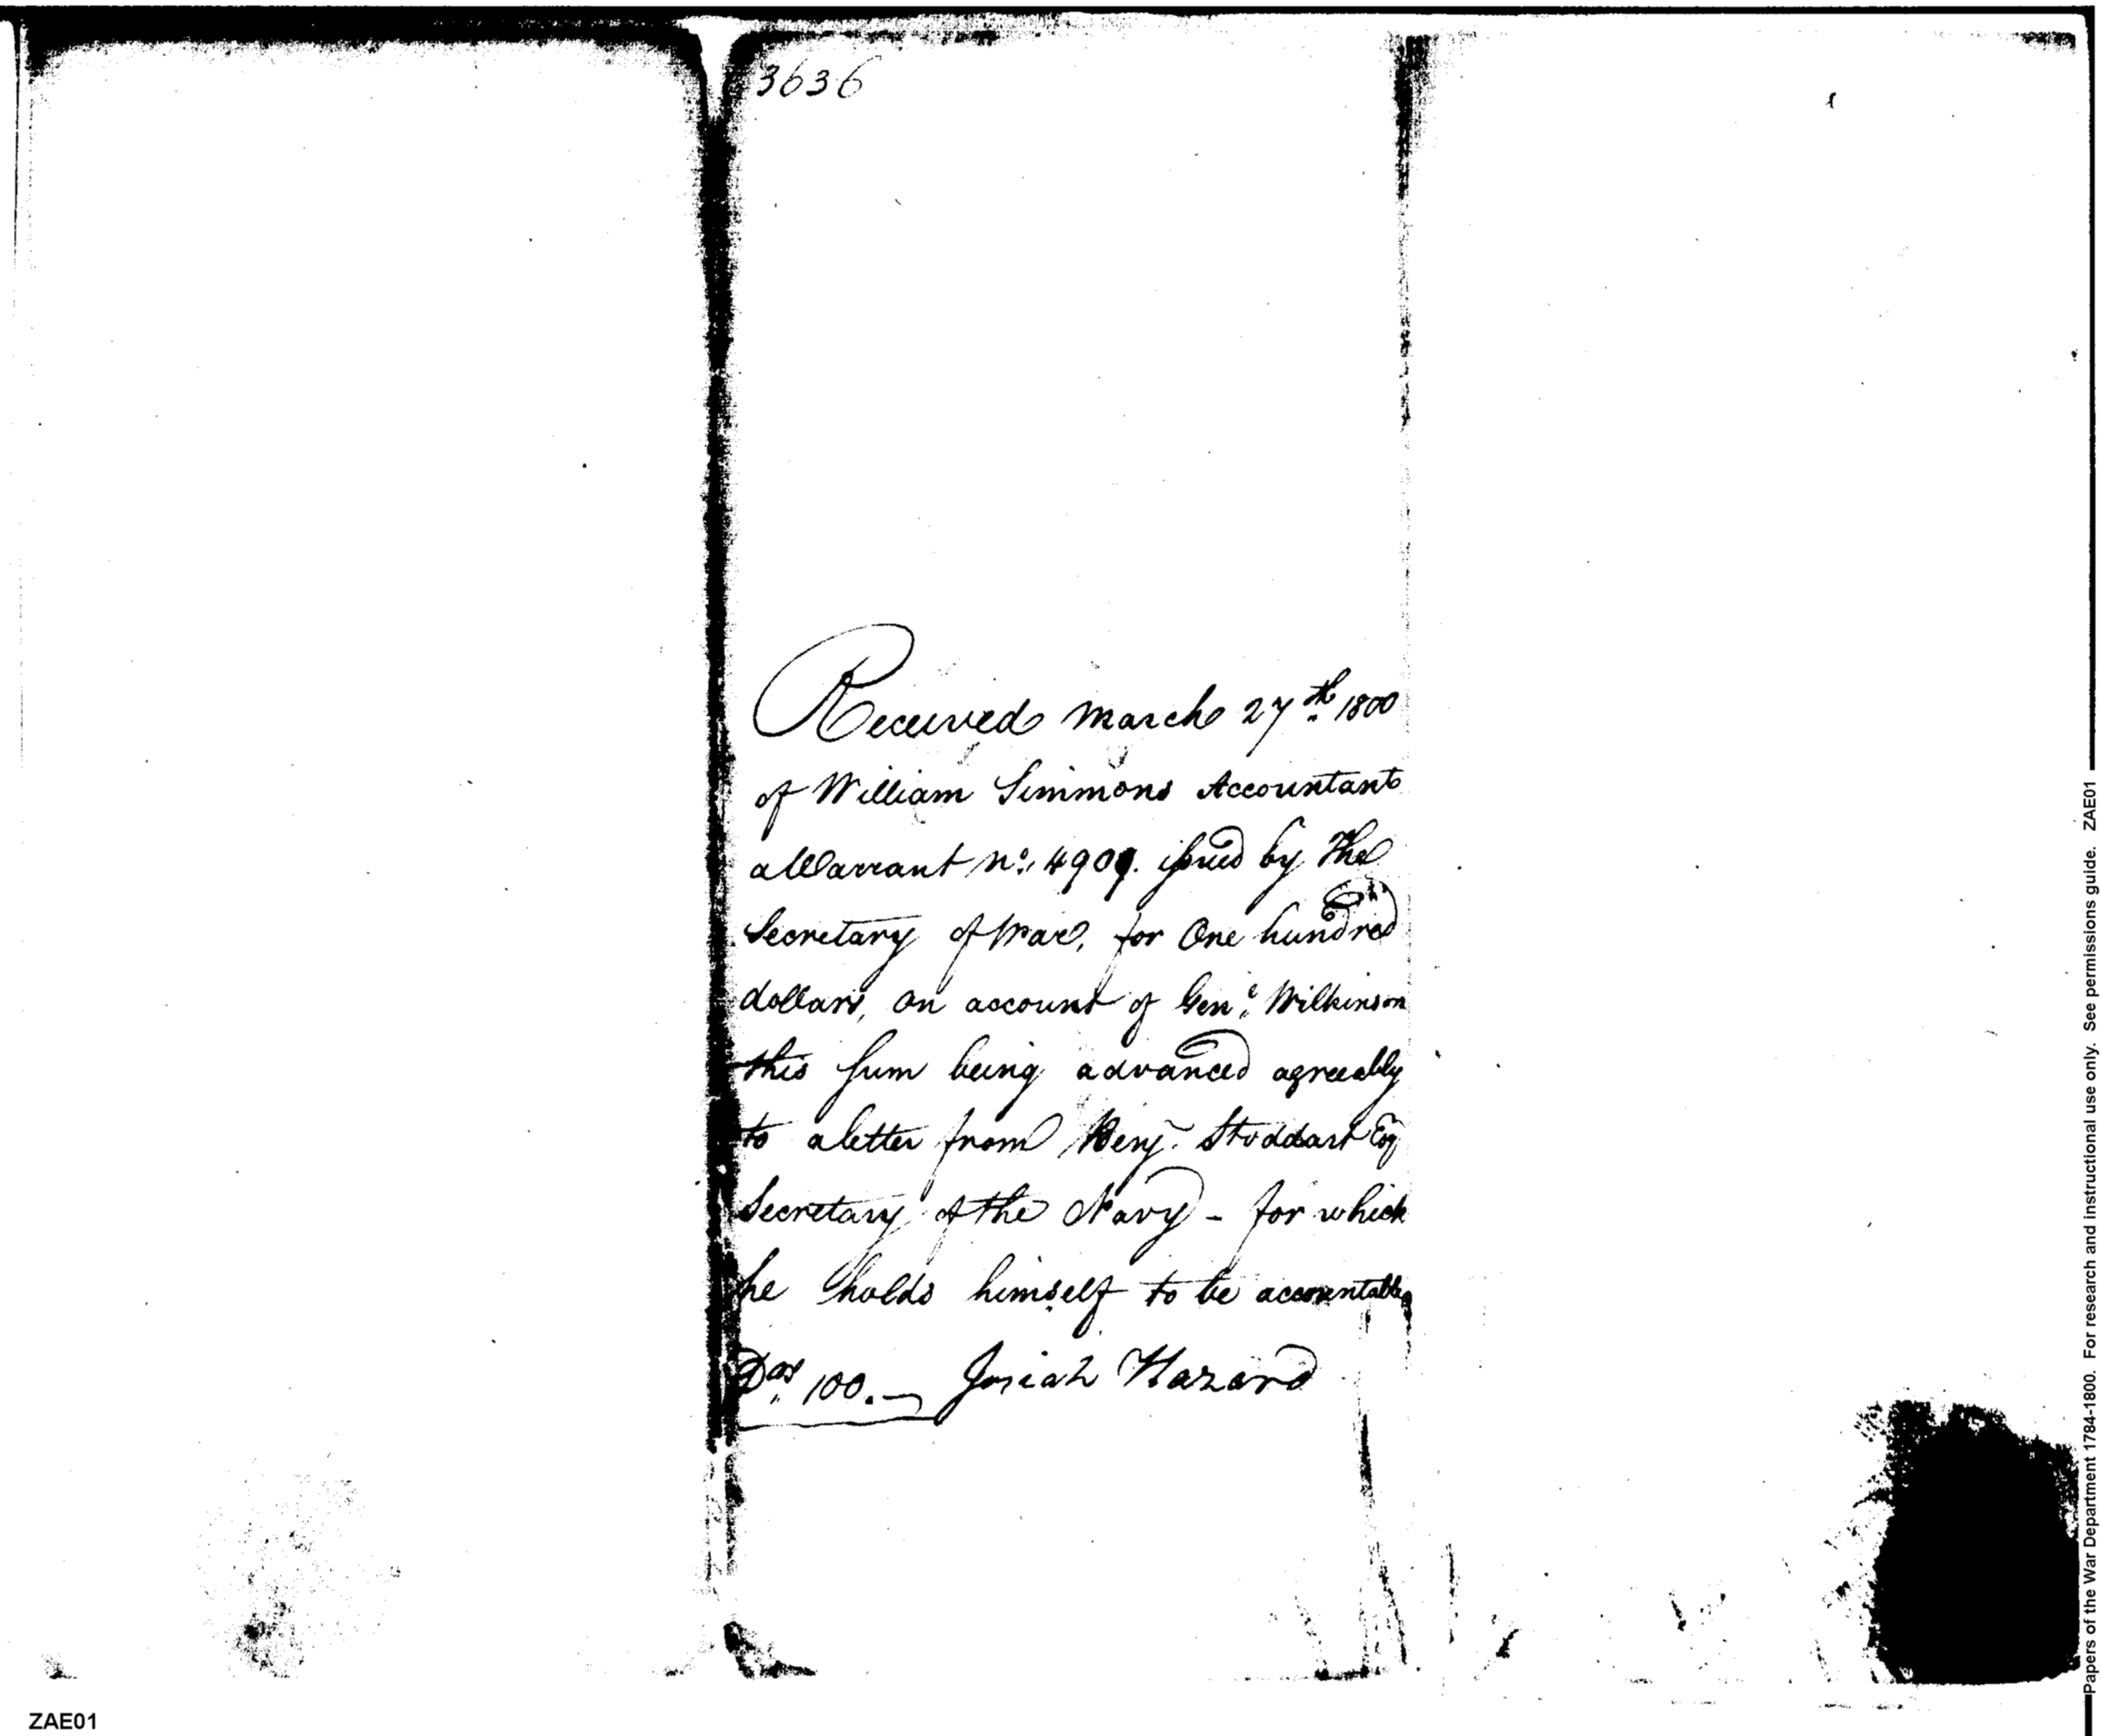 3636
Received March 27th 1800
of William Simmons Accountant
a Warrant No. 4909. issued by the
Secretary of War, for One hundred
dollars, on account of Genl. Wilkinson
this sum being advanced agreeably
to a letter from Benj. Stoddart Esq
Secretary of the Navy - for which
he holds himself to be accountable
Dos. 100.— Josiah Hazard
Papers of the War Department 1784-1800. For research and instructional use only. See permissions guide. ZAE01
ZAE01